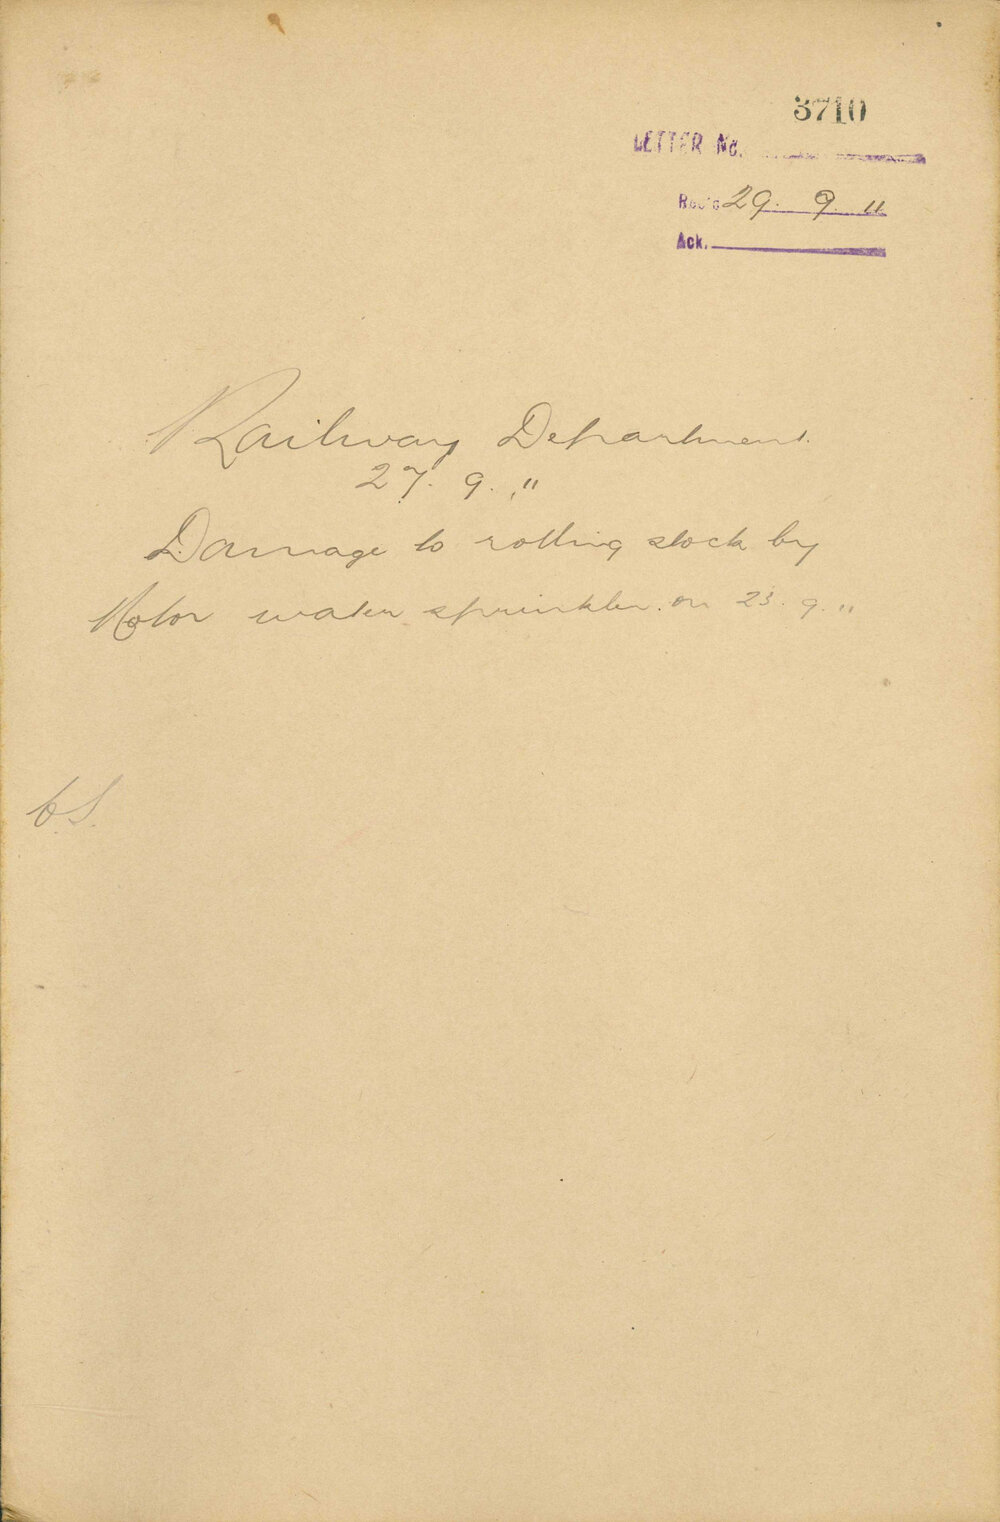 3710
LETTER No.
Rec'd 29. 9. 11
Ack.
Railway Department.
27. 9. 11
Damage to rolling stock by
Motor water sprinkler. on 23. 9. 11